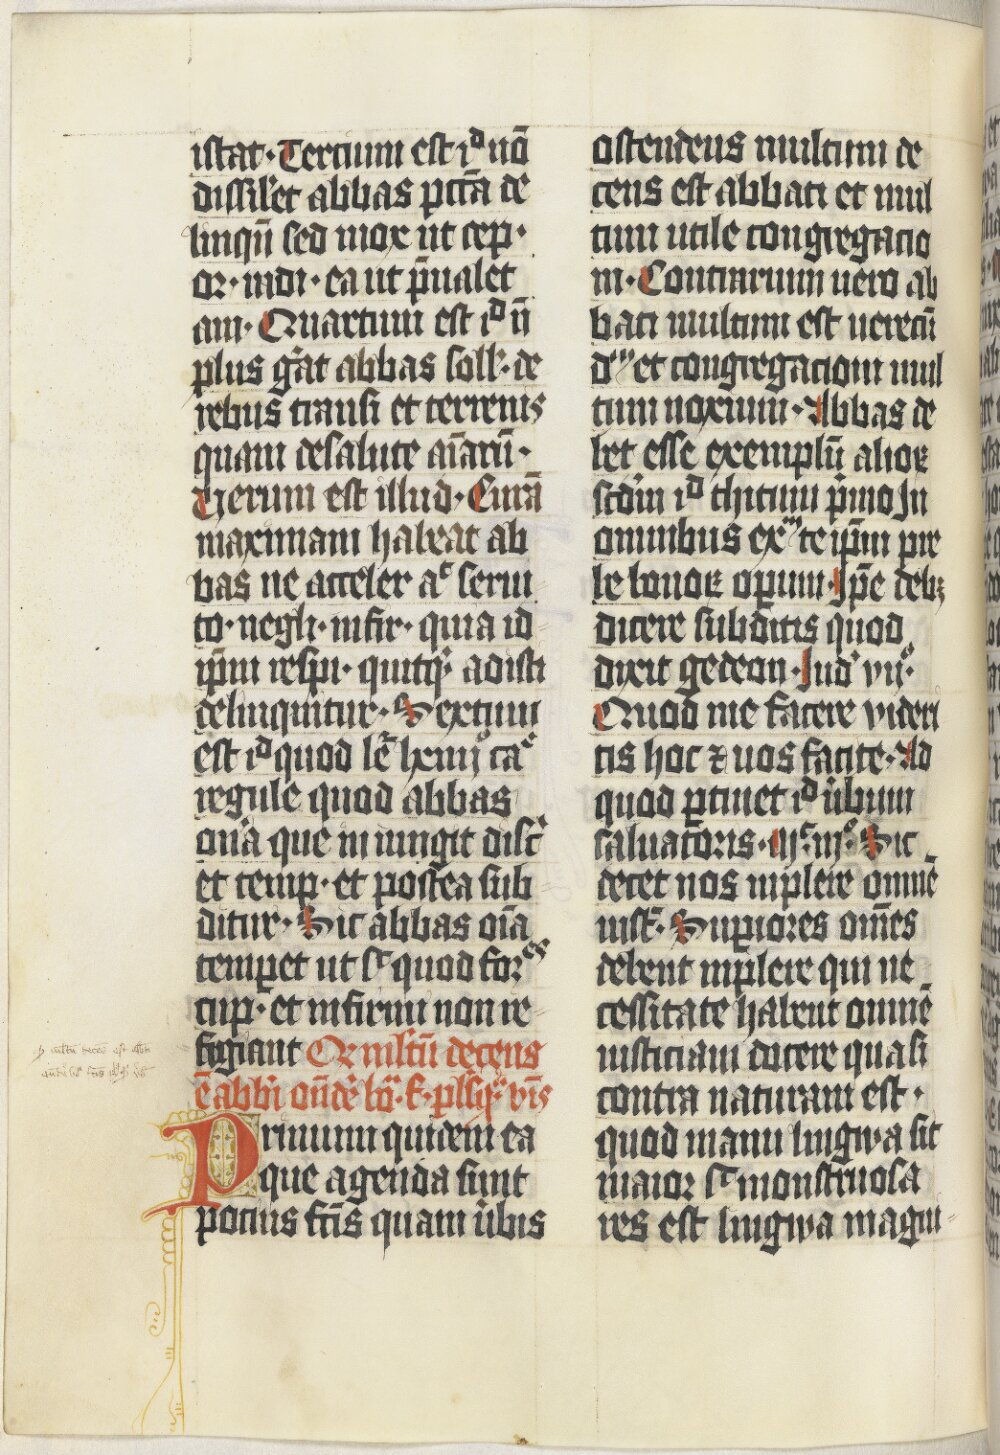 istat. Tercium est id nō
dissil'et abbas pctā de
linqū sed mox ut cep.
or. indi. ea ut p̄ualet
am. Quartum est id n̄
plus g̓at abbas soll. de
rebus transi et terrenis
quam desalute aīarū.
Verum est illud. Curā
maximam habeat ab
bas ne acceler ac serui
to. negli. infir. quia id
ip̄m respi. quitq̓ adisti
delinquitur. Sextum
est id quod le lxiiijo cao
regule quod abbas
om̄a que in iungit disc̓
et temp. et postea sub
ditur. Sic abbas om̄a
temperet ut sc quod fores
cup. et infirmi non re
fugiant Qr̄ mltū decens
ē abbi on̄de bō. f. plsq̓ v̄is
Primum quidem ea
que agenda sunt
pocius fc̄is quam u̓bis
ostendens multum de
cens est abbati et mul
tum utile congregacio
ni. Contrarium uero ab
bati multum est uerecū
dm et congregacioni mul
tum noxium. Abbas de
bet esse exemplū alioꝝ
scd̓m id thitum p̓mo In
omnibus exm te ip̄m pre
be bonoꝝ opum. Ip̄e debꝫ
dicere subditis quod
dixit gedeon. Iud̓ viio.
Quod me facere videri
tis hoc ⁊ uos facite. Ad
quod ptinet id u̓bum
saluatoris. mc. iijo. Sic
decet nos inplere omnē
iust̄. Supiores om̄es
debent inplere qui ne
cessitate habent omnē
iusticiam docere quasi
contra naturam est.
quod manu lingwa sit
maior sc monstruosa
res est lingwa magni